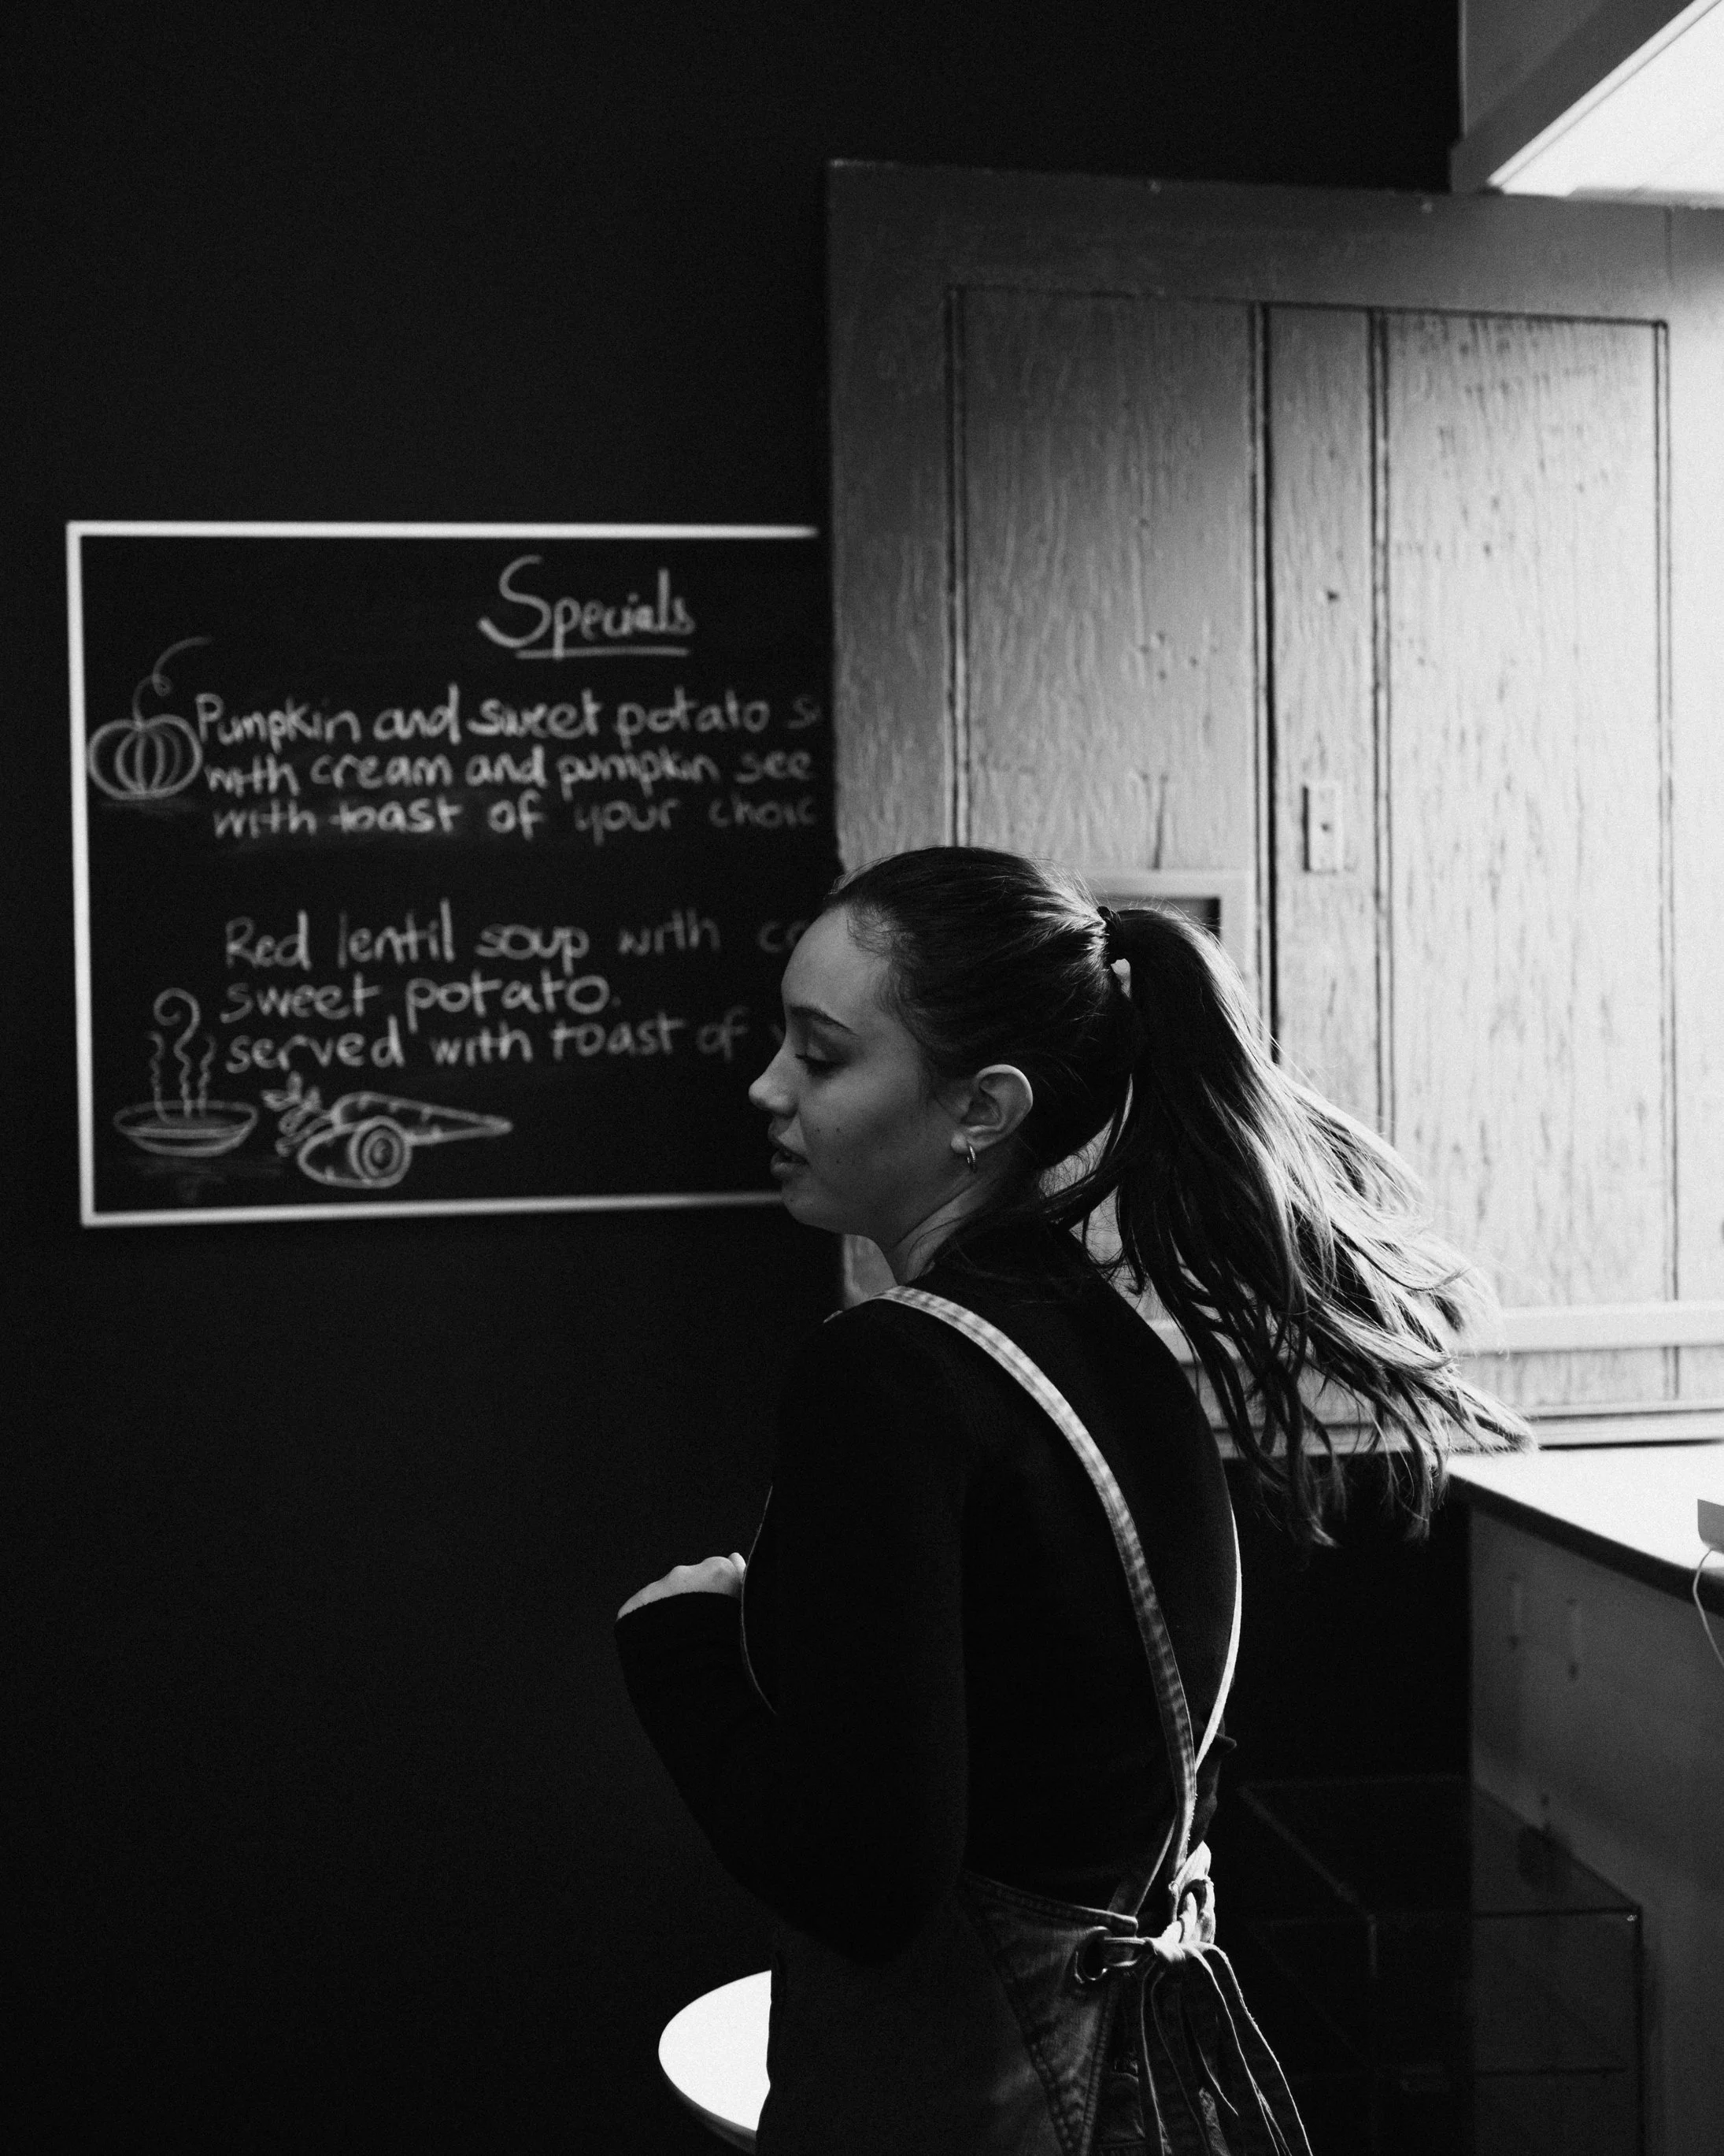 Specials
Pumpkin and sweet potato s
with cream and pumpkin see
with toast of your choic
Red lentil soup with co
sweet potato.
served with toast of